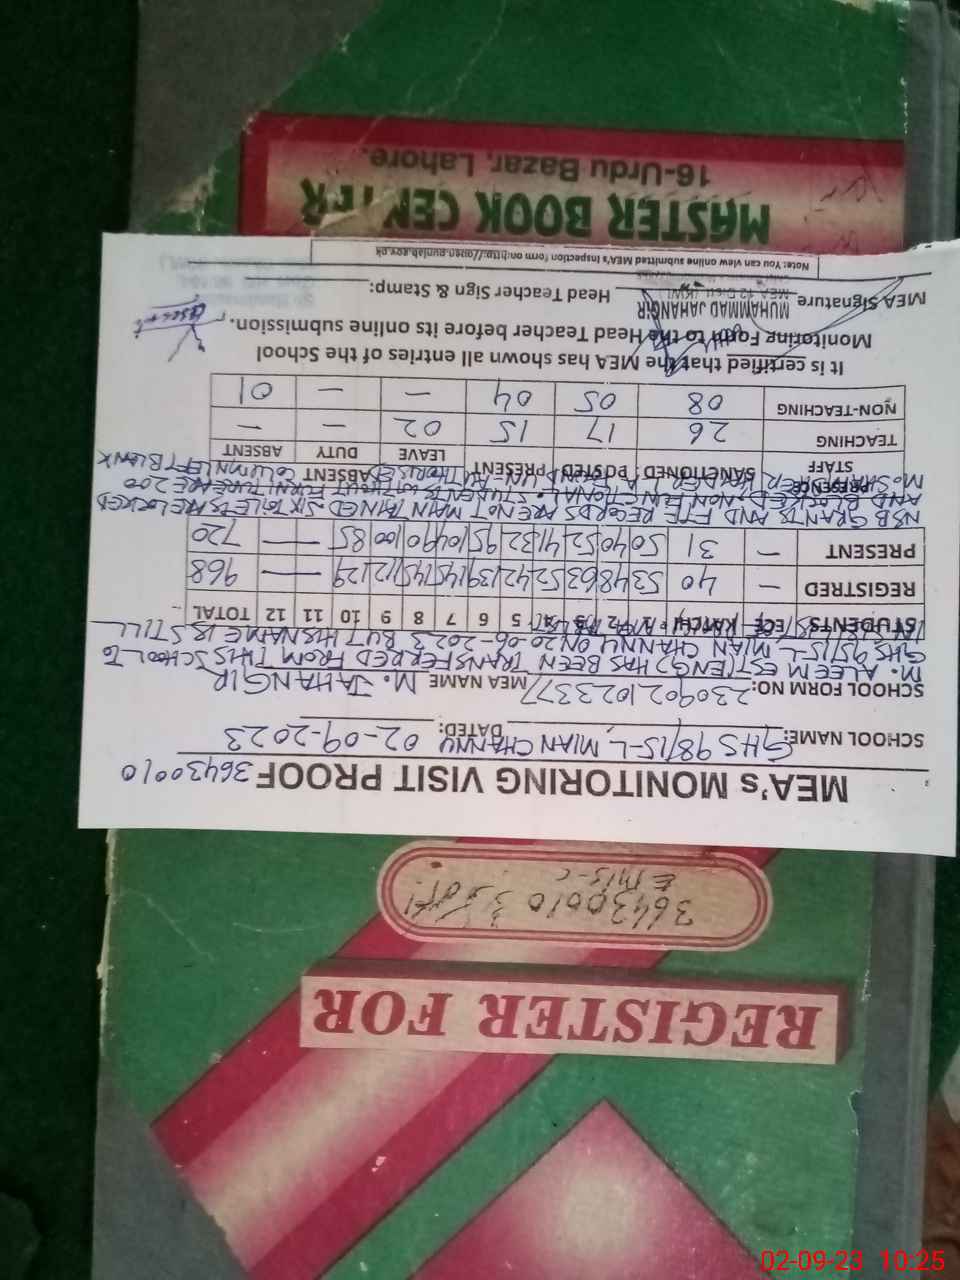 MEA's MONITORING VISIT PROOF 36430010
SCHOOL NAME: GHS 98/15-L MIAN CHANNU DATED: 02-09-2023
SCHOOL FORM NO: 230902102337 MEA NAME M. JAHANGIR
M. ALEEM EST(ENG) HAS BEEN TRANSFERRED FROM THIS SCHOOL TO
GHS 95/15-L MIAN CHANNU ON 20-06-2023 BUT HIS NAME IS STILL
STUDENTS ECE KATCHI 1 2 3 4 5 6 7 8 9 10 11 12 TOTAL
REGISTRED — 40 53 48 63 52 42 139 145 145 112 129 — — 968
PRESENT — 31 50 40 52 41 32 95 104 90 100 85 — — 720
NSB GRANTS AND FTF RECORDS ARE NOT MAINTAINED. SIX TOILETS ARE LOCKED
AND BLOCKED, NON FUNCTIONAL. STUDENTS WITHOUT FURNITURE ARE 200
COLUMN LEFT BLANK
STAFF PRESENCE SANCTIONED POSTED PRESENT LEAVE ABSENT DUTY ABSENT
TEACHING 26 17 15 02 — —
NON-TEACHING 08 05 04 — — 01
It is certified that the MEA has shown all entries of the School
Monitoring Form to the Head Teacher before its online submission.
MEA Signature MUHAMMAD JAHANGIR Head Teacher Sign & Stamp:
Note: You can view online submitted MEA's Inspection form on:http://open.punjab.gov.pk
MASTER BOOK CENTER
16-Urdu Bazar, Lahore.
REGISTER FOR
36430010
EMIS-C
02-09-23 10:25